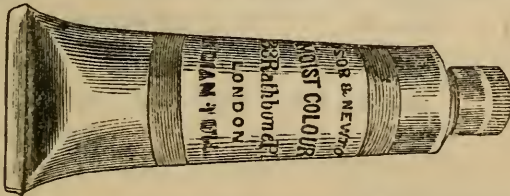 SOR & NEWTO
MOIST COLOUR
38 Rathbone Pl
LONDON
DIAN